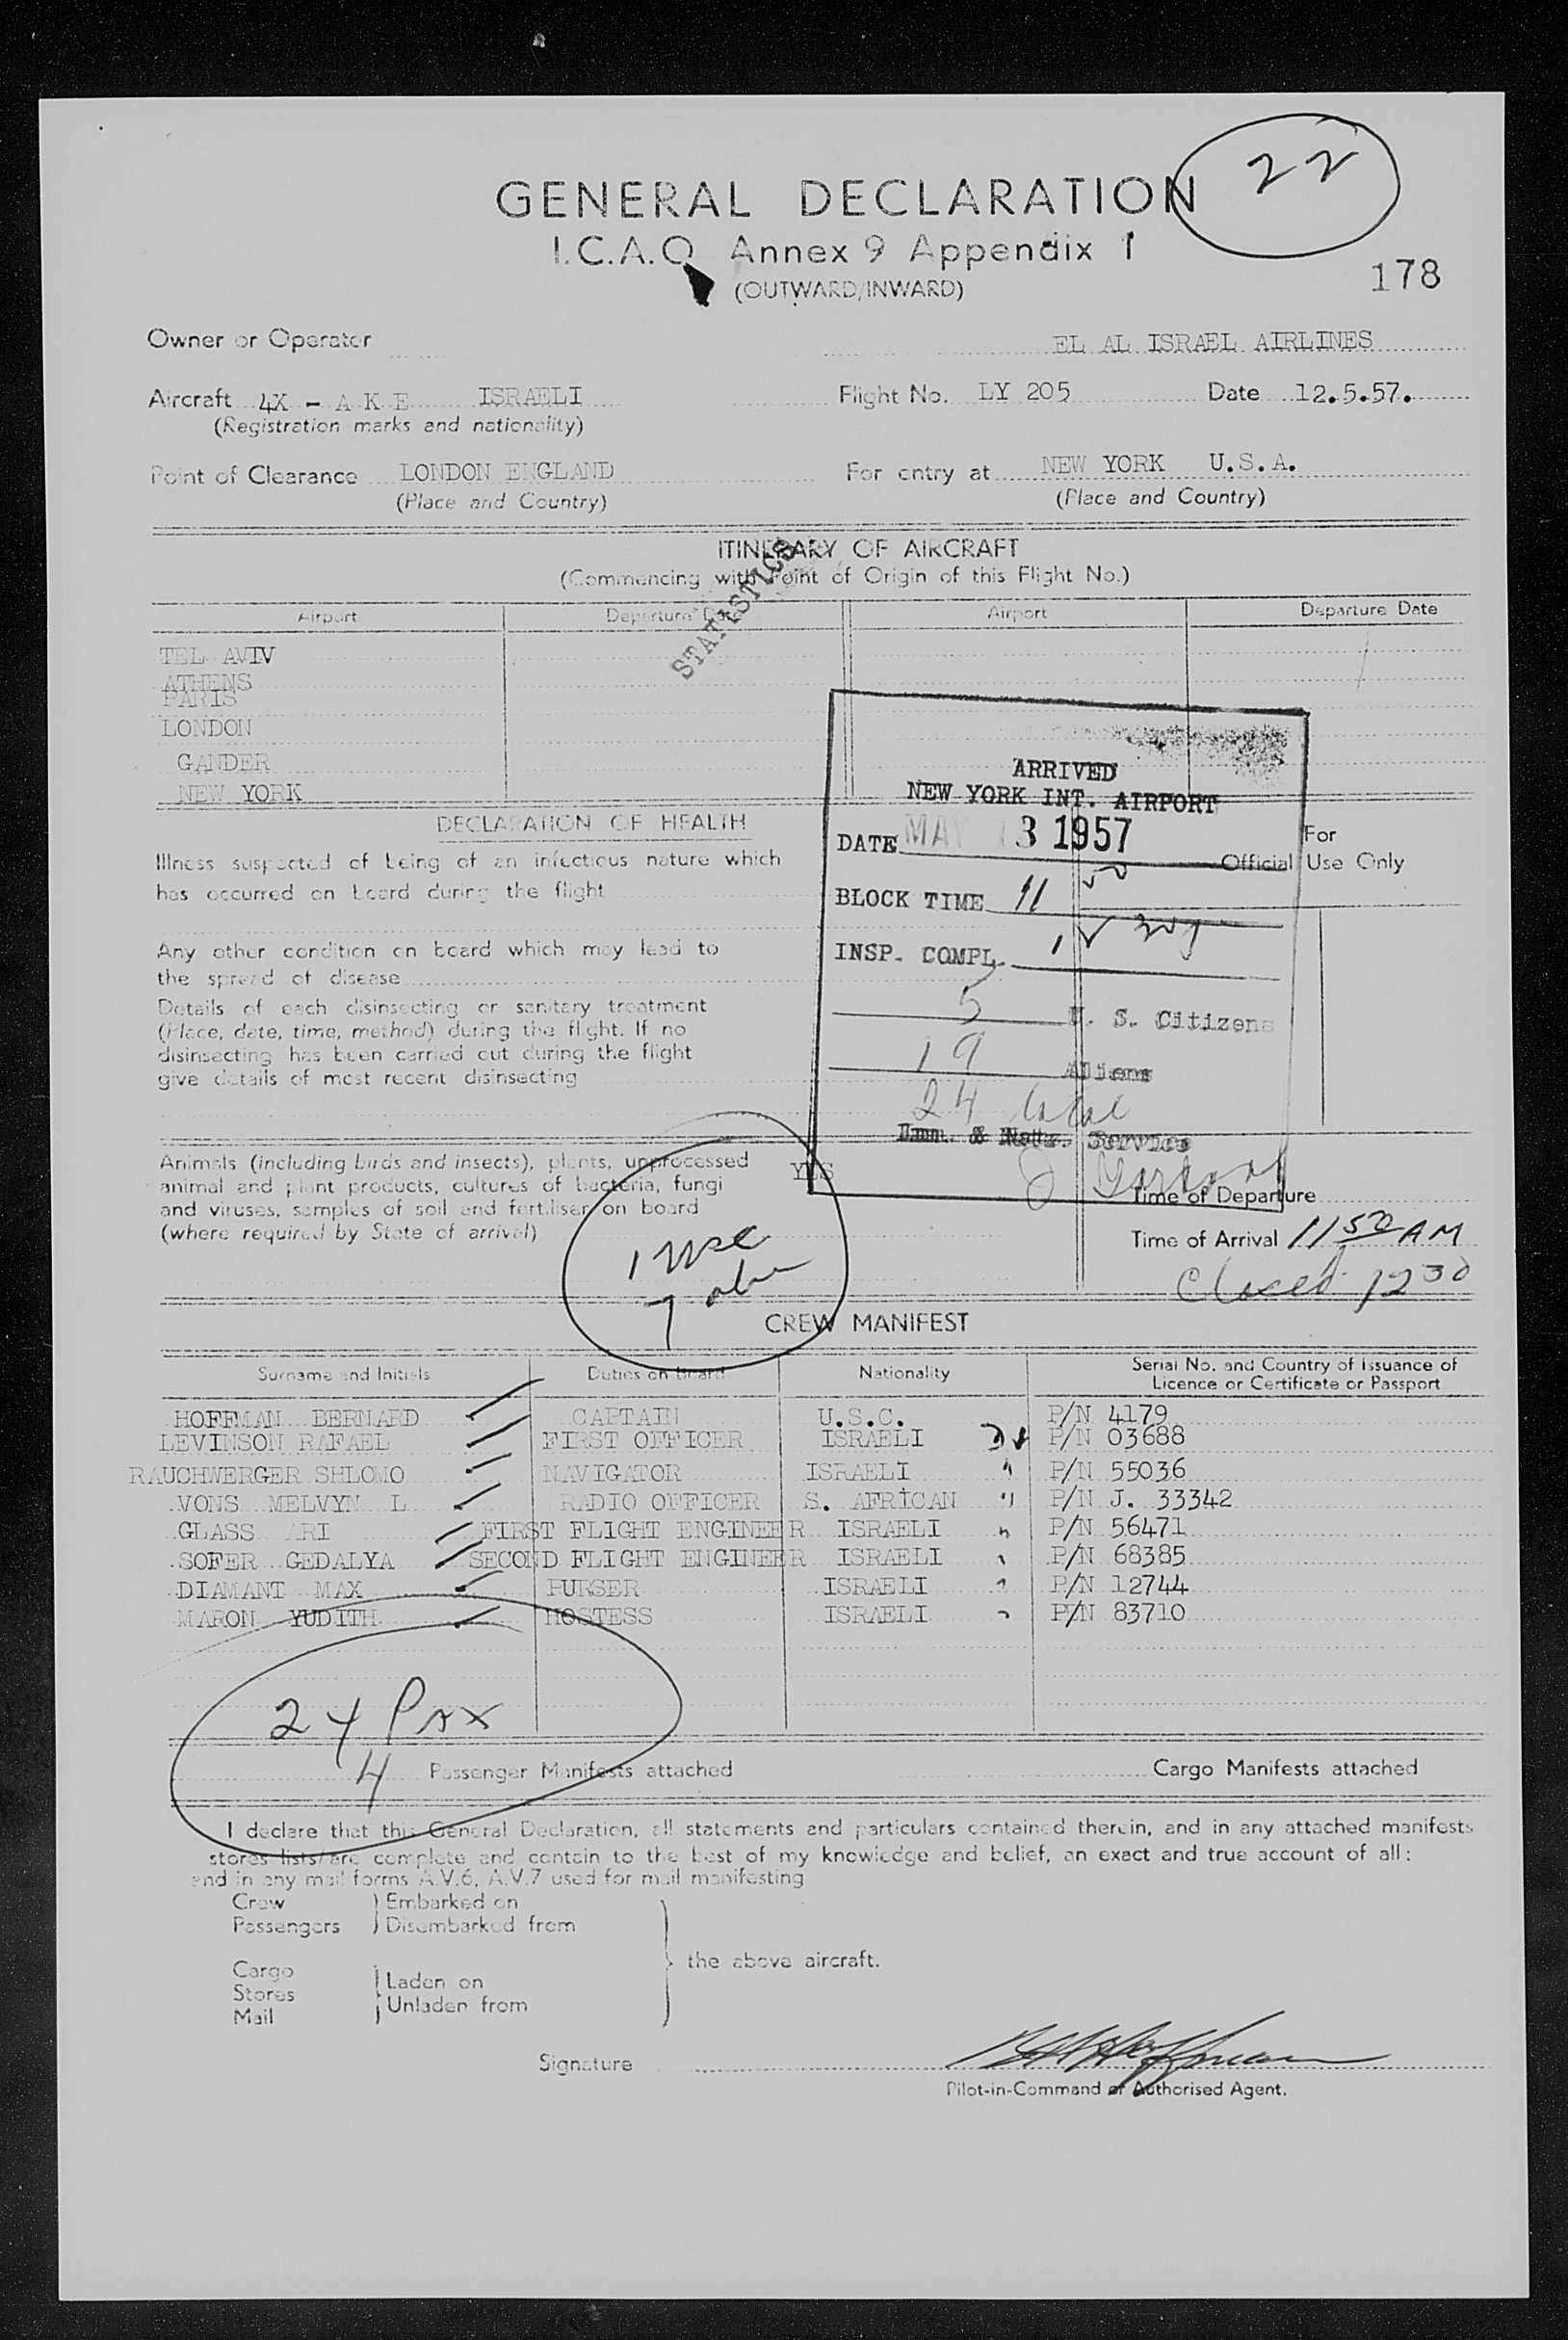 22
GENERAL DECLARATION
I.C.A.O. Annex 9 Appendix 1
(OUTWARD/INWARD)
178
Owner or Operator EL AL ISRAEL AIRLINES
Aircraft 4X - A K E ISRAELI Flight No. LY 205 Date 12.5.57.
(Registration marks and nationality)
Point of Clearance LONDON ENGLAND For entry at NEW YORK U.S.A.
(Place and Country) (Place and Country)
ITINERARY OF AIRCRAFT
(Commencing with Point of Origin of this Flight No.)
STATISTICS
Airport Departure Date Airport Departure Date
TEL AVIV
ATHENS
PARIS
LONDON
GANDER
NEW YORK
ARRIVED
NEW YORK INT. AIRPORT
DATE MAY 13 1957
BLOCK TIME 11 50
INSP. COMPL.
5 U. S. Citizens
19 Aliens
24 total
Imm. & Natz. Service
DECLARATION OF HEALTH
For
Official Use Only
Illness suspected of being of an infectious nature which
has occurred on board during the flight
Any other condition on board which may lead to
the spread of disease
Details of each disinsecting or sanitary treatment
(Place, date, time, method) during the flight. If no
disinsecting has been carried out during the flight
give details of most recent disinsecting
Animals (including birds and insects), plants, unprocessed YES
animal and plant products, cultures of bacteria, fungi
and viruses, samples of soil and fertiliser on board
(where required by State of arrival)
Time of Departure
Time of Arrival 11 50 AM
Closed 12 30
1 usc
7 aln
CREW MANIFEST
Surname and Initials Duties on Board Nationality Serial No. and Country of Issuance of
Licence or Certificate or Passport
HOFFMAN BERNARD CAPTAIN U.S.C. P/N 4179
LEVINSON RAFAEL FIRST OFFICER ISRAELI P/N 03688
RAUCHWERGER SHLOMO NAVIGATOR ISRAELI P/N 55036
VONS MELVYN L RADIO OFFICER S. AFRICAN P/N J. 33342
GLASS ARI FIRST FLIGHT ENGINEER ISRAELI P/N 56471
SOFER GEDALYA SECOND FLIGHT ENGINEER ISRAELI P/N 68385
DIAMANT MAX PURSER ISRAELI P/N 12744
MARON YUDITH HOSTESS ISRAELI P/N 83710
24 Pax
4 Passenger Manifests attached Cargo Manifests attached
I declare that this General Declaration, all statements and particulars contained therein, and in any attached manifests
stores lists/are complete and contain to the best of my knowledge and belief, an exact and true account of all:
and in any mail forms A.V.6, A.V.7 used for mail manifesting
Crew ) Embarked on
Passengers ) Disembarked from
the above aircraft.
Cargo
Stores Laden on
Mail Unladen from
Signature
Pilot-in-Command or Authorised Agent.